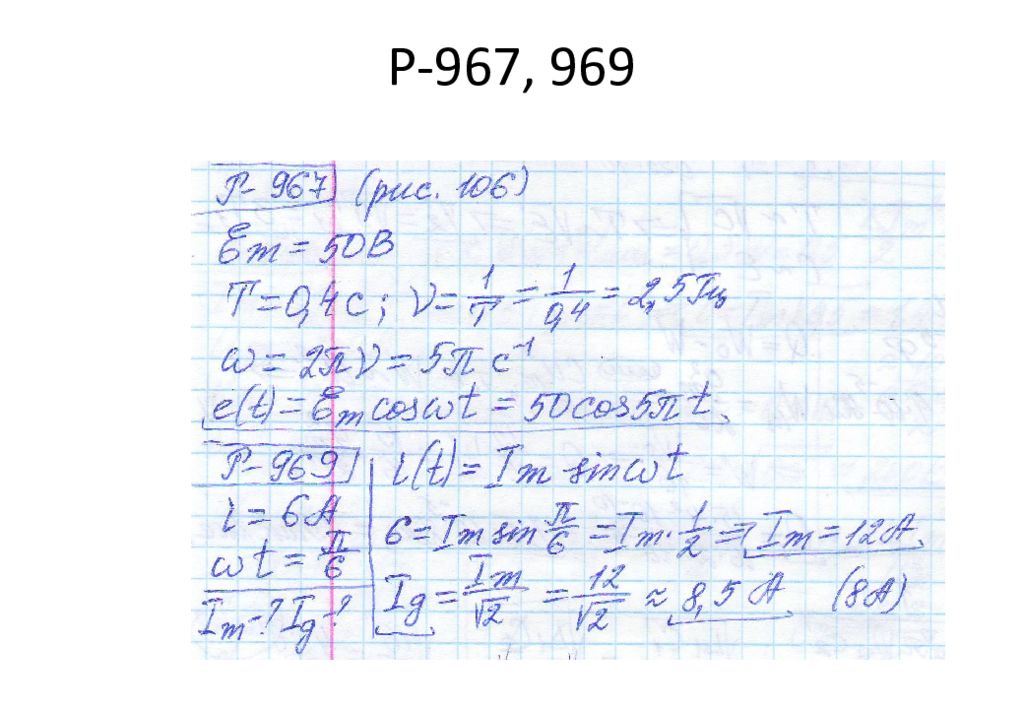 Р-967, 969
Р-967 (рис. 106)
Ɛm = 50В
T = 0,4 с; ν = 1/T = 1/0,4 = 2,5 Гц
ω = 2πν = 5π с⁻¹
e(t) = Ɛm cos ωt = 50 cos 5π t
Р-969
i = 6А
ωt = π/6
Im-? Ig-?
i(t) = Im sin ωt
6 = Im sin π/6 = Im · 1/2 ⇒ Im = 12А.
Ig = Im/√2 = 12/√2 ≈ 8,5 А. (8А)